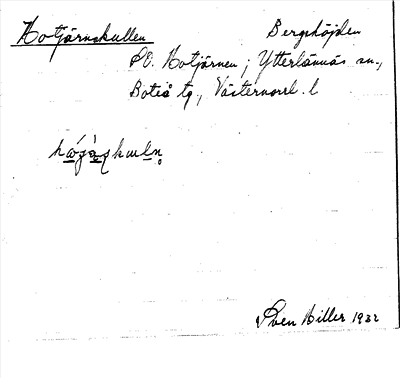 Kotjärnskullen Bergshöjden
SO. Kotjärnen; Ytterlännäs sn.,
Boteå tg., Västernorrl. l
Sven Hiller 1932